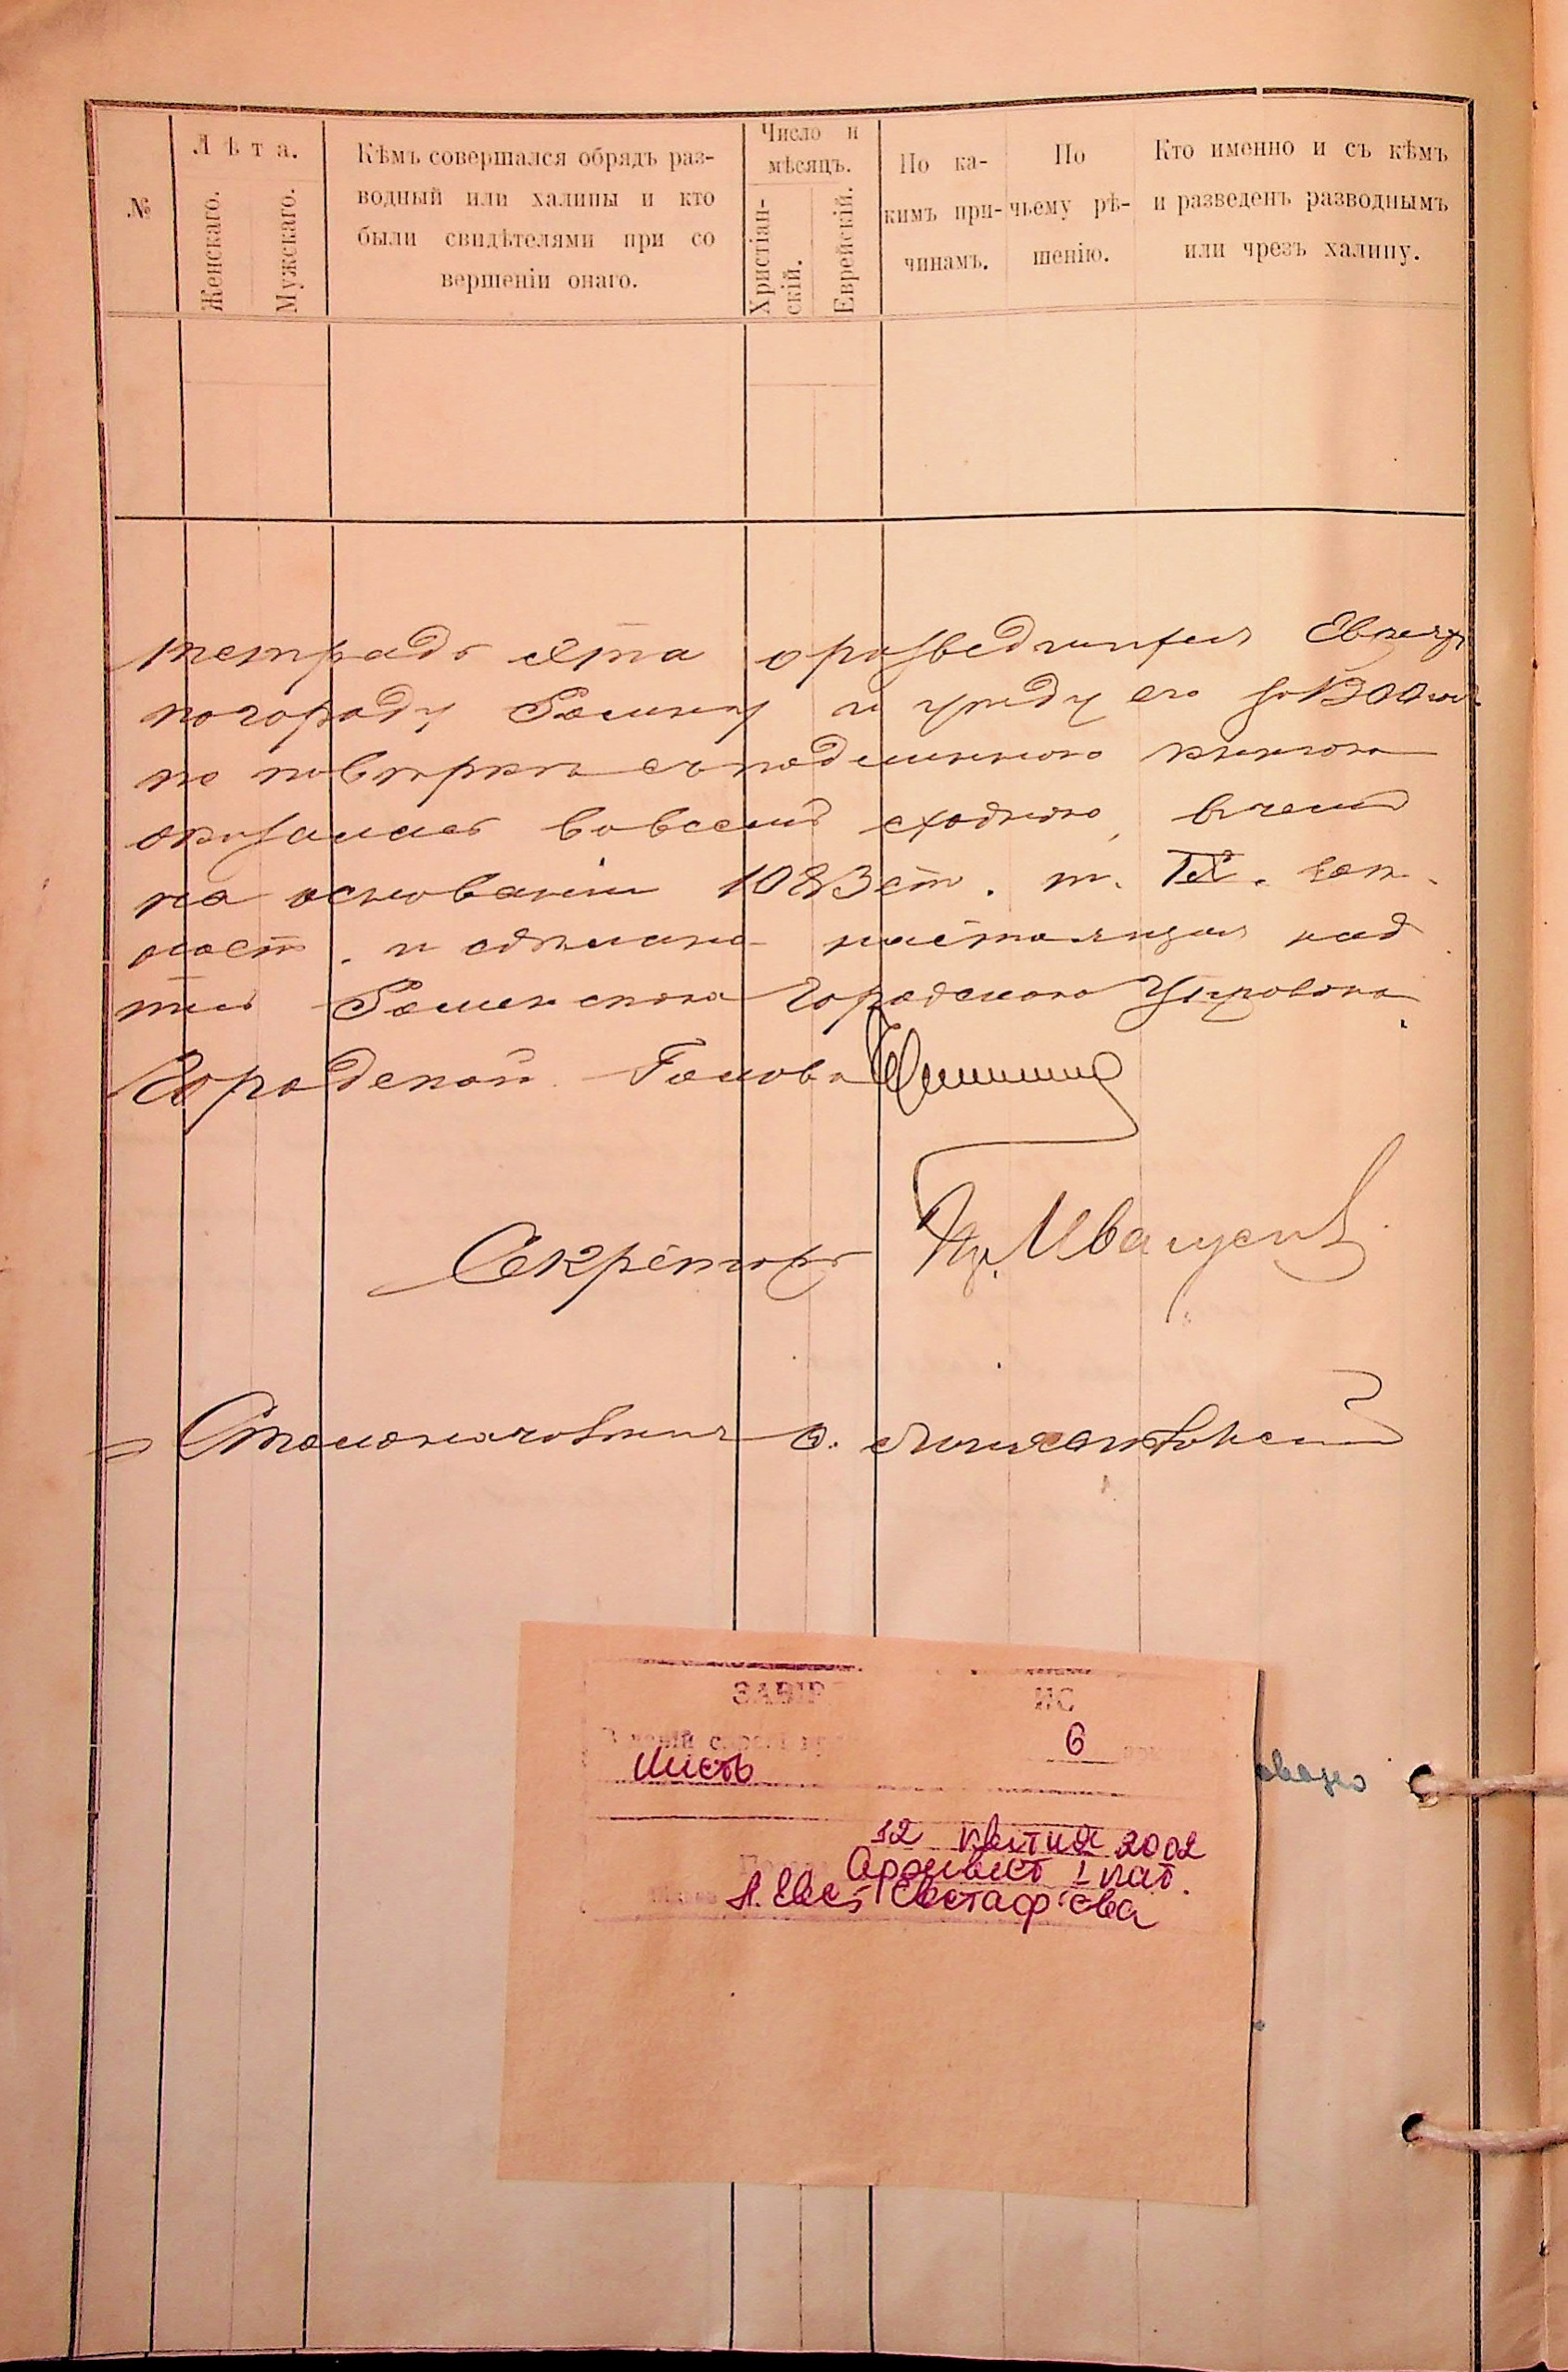 №
Лѣта.
Женскаго.
Мужскаго.
Кѣмъ совершался обрядъ раз-
водный или халицы и кто
были свидѣтелями при со
вершеніи онаго.
Число и
мѣсяцъ.
Христіан-
скій.
Еврейскій.
По ка-
кимъ при-
чинамъ.
По
чьему рѣ-
шенію.
Кто именно и съ кѣмъ
и разведенъ разводнымъ
или чрезъ халицу.
тетрадь эта о разведшихся Евреях
по городу Ромну и уезду его за 1900 год
по повѣркѣ съ подлинною книгою
оказалась во всемъ сходною, въ чемъ
на основаніи 1083 ст. т. IX. зак.
о сост. и сдѣлана настоящая над
пись Роменскою Городскою Управою.
Городской Голова
Секретарь Ив. Иващенко
Столоначальник
ЗАВІР ИС
6
лист
12 квітня 2002
Архівіст I кат.
Н. Евс Євстаф'єва